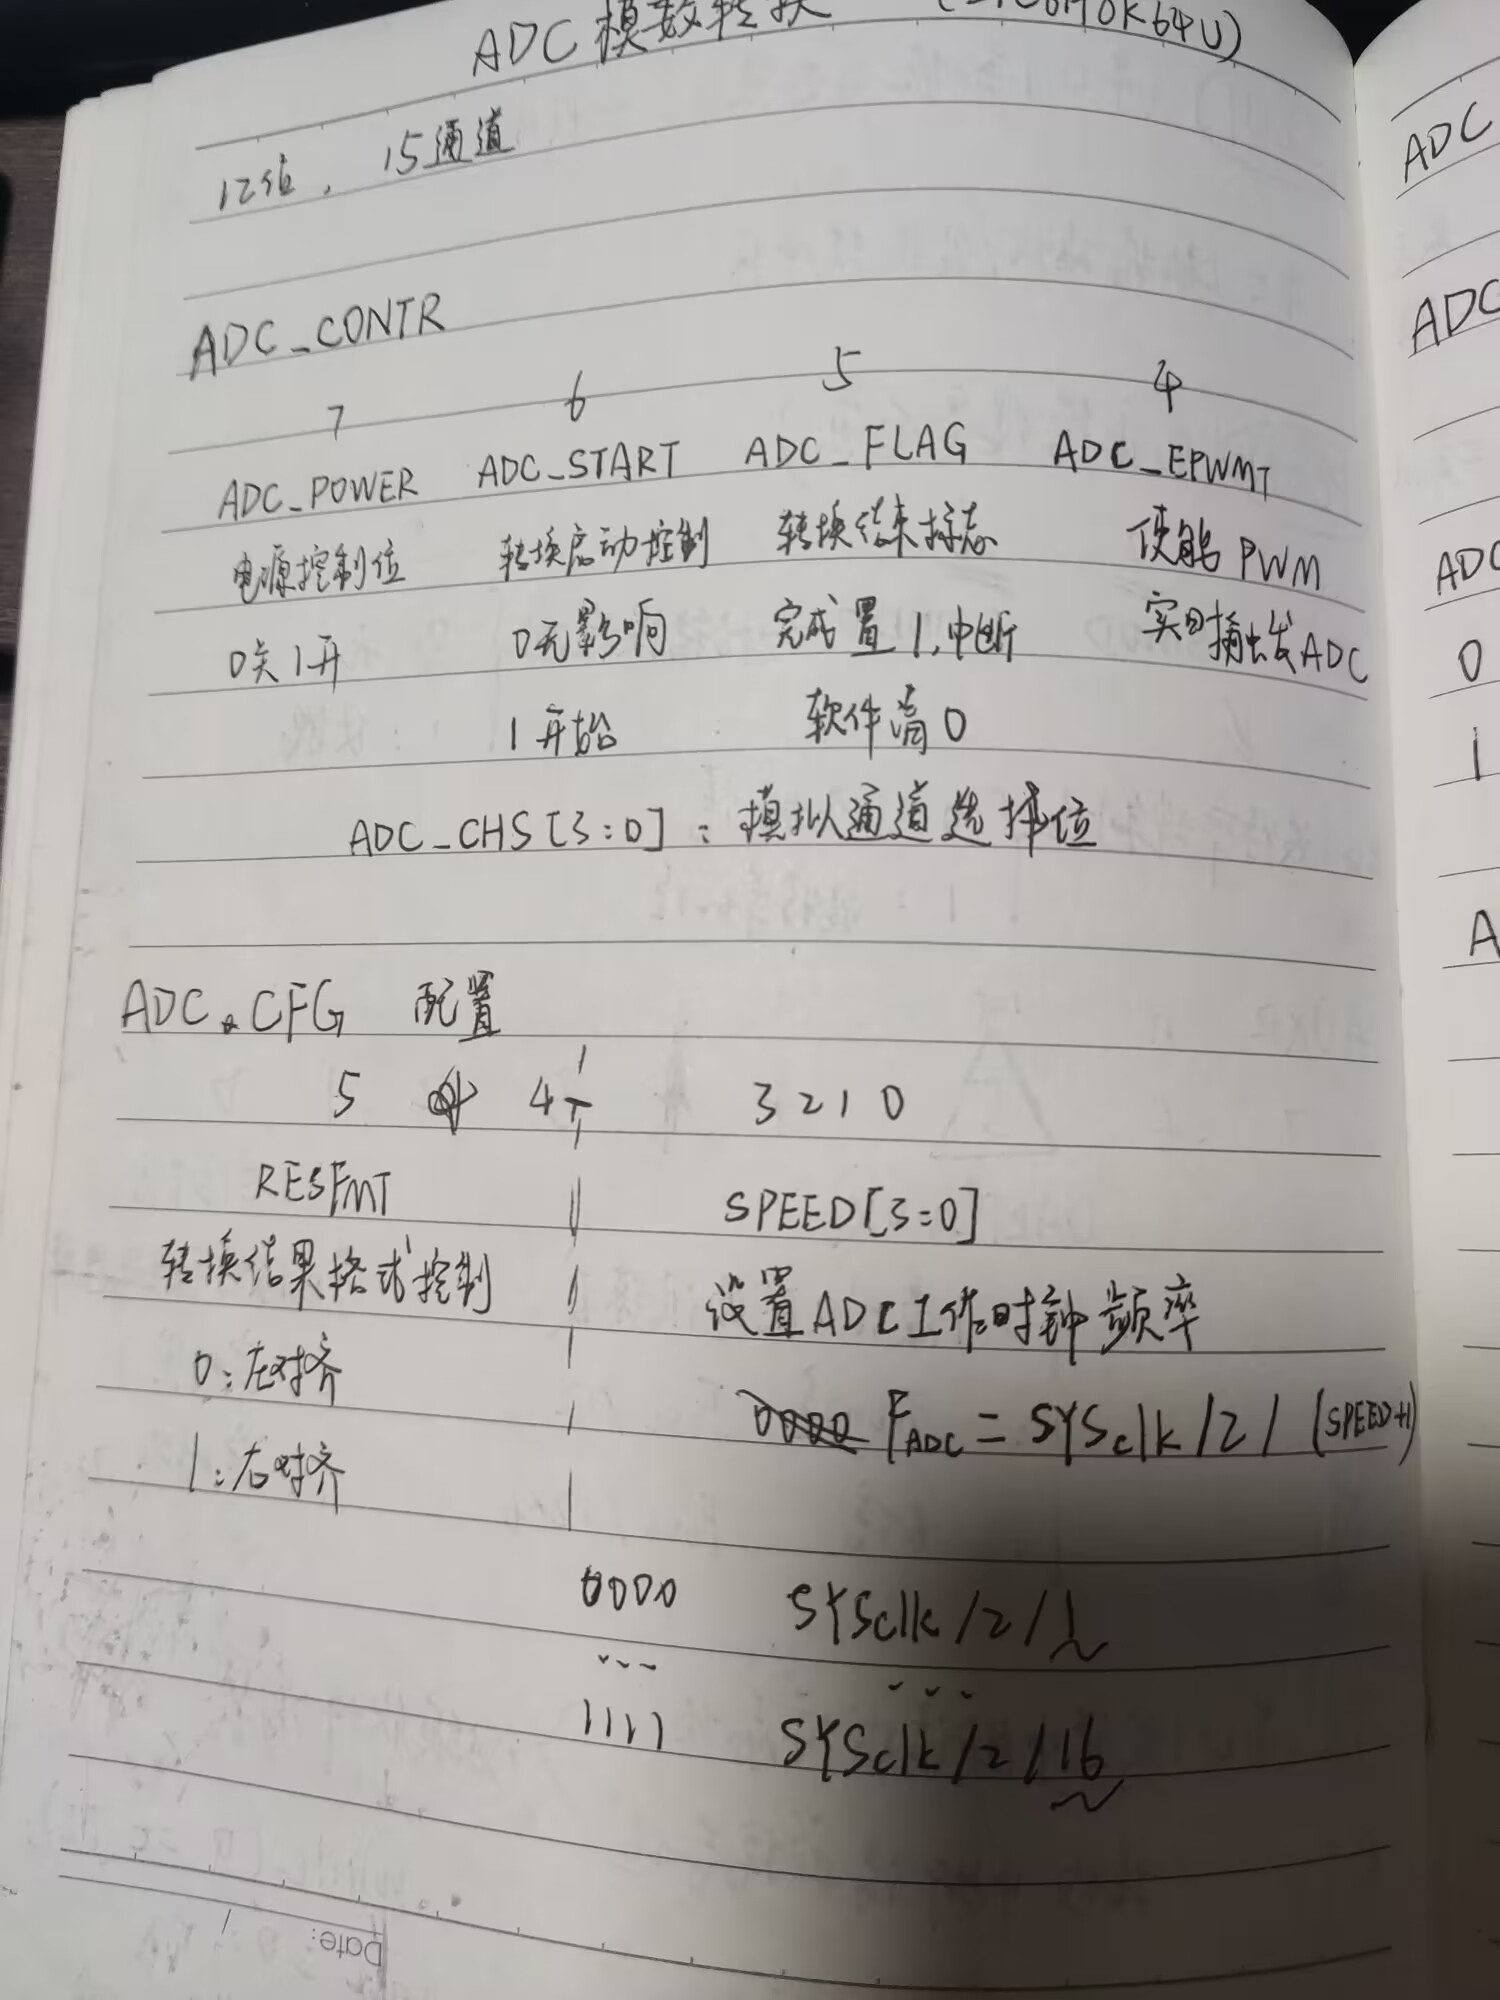 ADC 模数转换
12位, 15通道
ADC_CONTR
7 6 5 4
ADC_POWER ADC_START ADC_FLAG ADC_EPWMT
电源控制位 转换启动控制 转换结束标志 使能 PWM
0关1开 0无影响 完成置1,中断 触发ADC
1开始 软件清0
ADC_CHS[3:0]: 模拟通道选择位
ADC_CFG 配置
5 4 3 2 1 0
RESFMT SPEED[3:0]
转换结果格式控制 设置ADC工作时钟频率
0:左对齐 0000 FADC = SYSclk/2/(SPEED+1)
1:右对齐
0000 SYSclk/2/1
... ...
1111 SYSclk/2/16
Date:
ADC
ADC
ADC
0
1
A